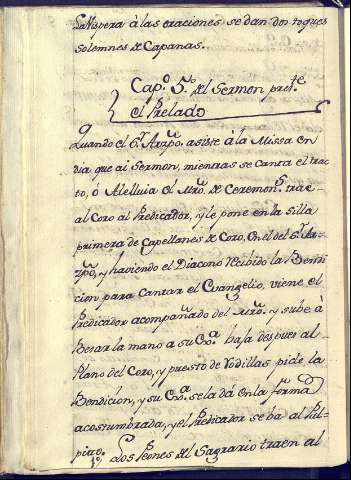 La Vispera à las oraciones se dan dos toques
solemnes de Capanas.
Capº. 5º. del Sermon preste.
el Prelado
Quando el Sr. Arzpo. asiste à la Missa en
dia que ai Sermon, mientras se canta el trac
to, ó Alelluia el Mro. de Ceremons. trae
al Coro al Predicador, y le pone en la silla
primera de Capellanes de Coro, en el del Sr. Ar-
zpo, y haviendo el Diacono recibido la Bendi
cion para Cantar el Evangelio, viene el
Predicador acompañado del Mro. y sube à
Besar la mano a su Exa. baja despues al
Plano del Coro, y puesto de rodillas pide la
Bendicion, y su Exa. se la dà en la forma
acostumbrada, y el Predicador se ba al Pul-
pito. Los Peones del Sagrario traen al